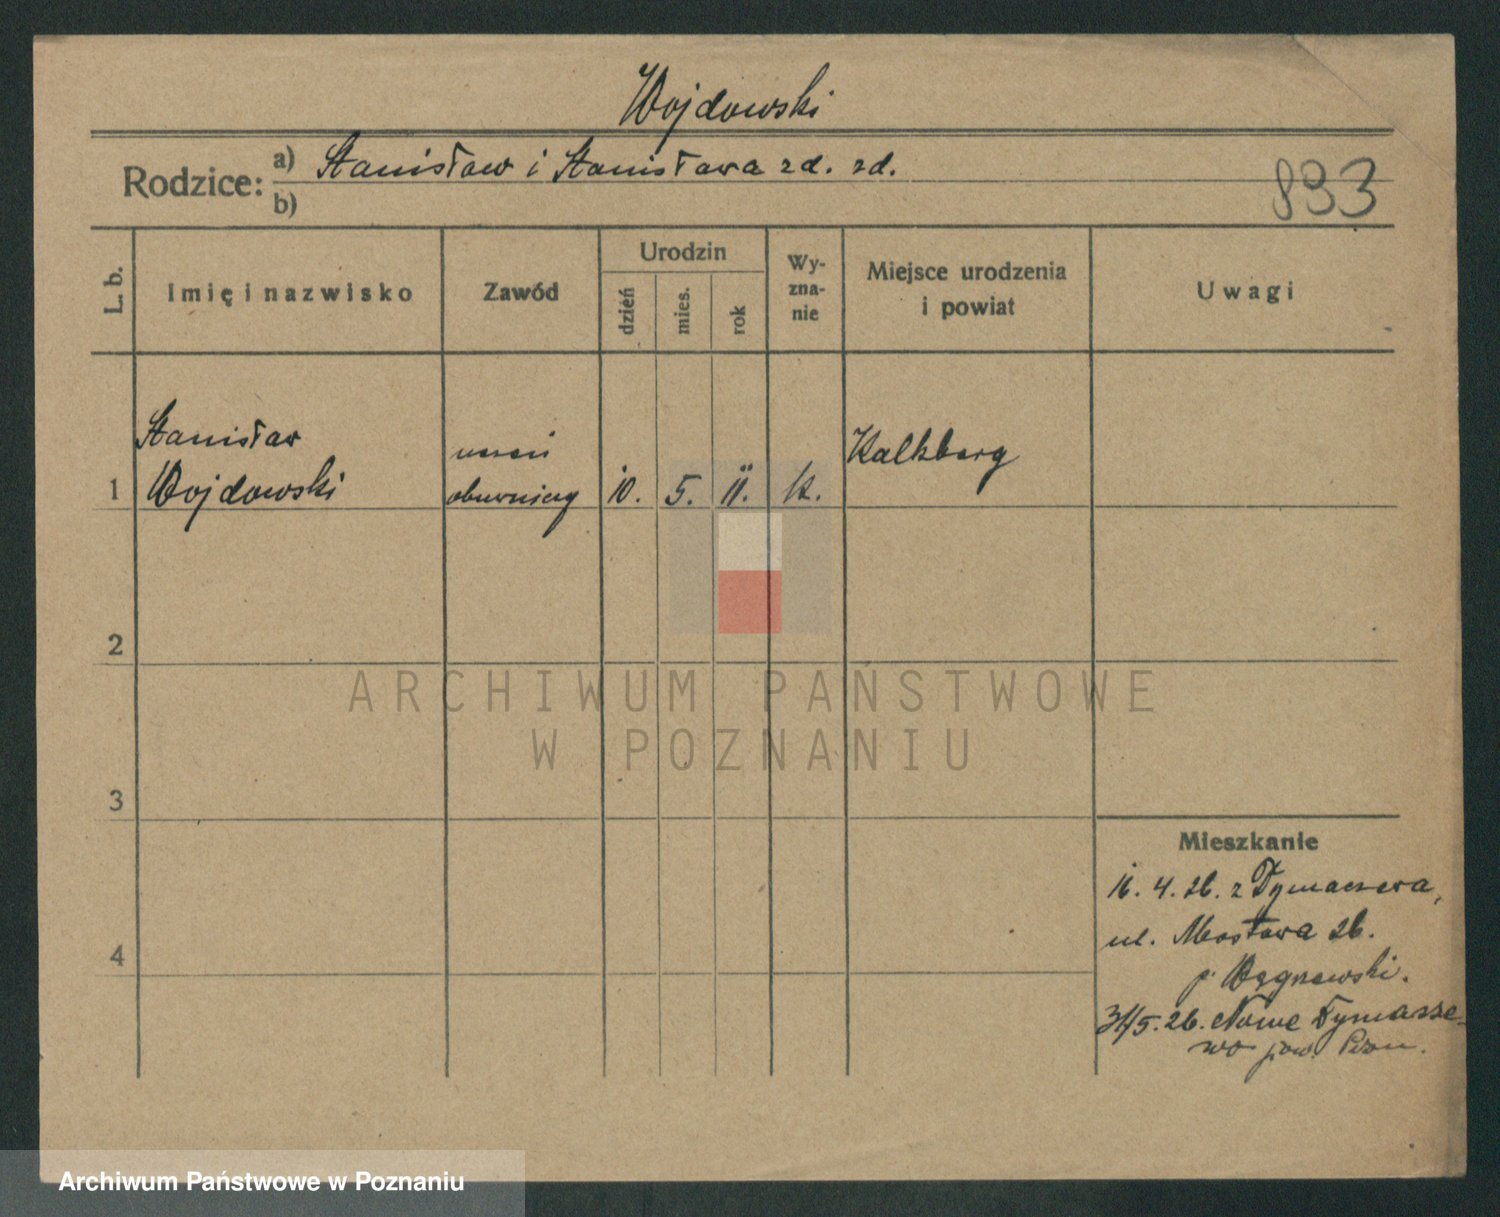 Wojdowski
Rodzice: a) Stanisław i Stanisława zd. zd.
b)
893
L. b.
Imię i nazwisko
Zawód
Urodzin
dzień
mies.
rok
Wy-
zna-
nie
Miejsce urodzenia
i powiat
Uwagi
Stanisław
1 Wojdowski
uczeń
obuwniczy
10. 5. 11. k.
Kalkberg
2
3
4
ARCHIWUM PAŃSTWOWE
W POZNANIU
Mieszkanie
16. 4. 26. z Tymaczewa,
ul. Mostowa 26.
p.
31/5. 26. Nowe Tymasze-
wo pow. Pozn.
Archiwum Państwowe w Poznaniu